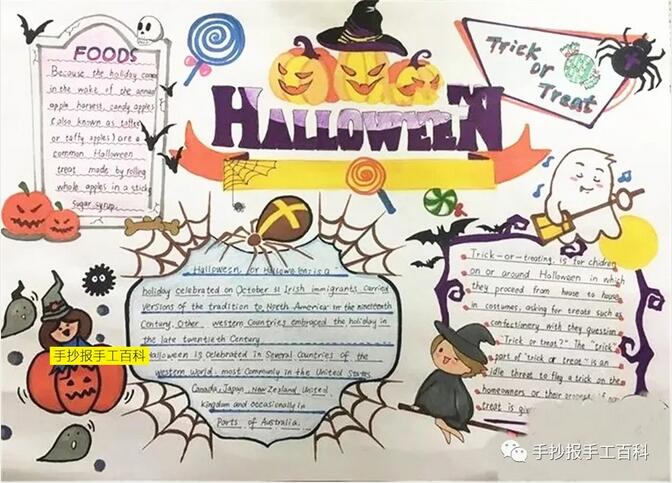 FOODS
Because the holiday comes
in the wake of the annual
apple harvest, candy apples
(also known as toffee
or taffy apples) are a
common Halloween
treat made by rolling
whole apples in a sticky
sugar syrup.
HALLOWEEN
Trick
or
Treat
Halloween or Hallowe'en is a
holiday celebrated on October 31 Irish immigrants carried
versions of the tradition to North America in the nineteenth
Century. Other western Countries embraced the holiday in
the late twentieth Century
Halloween is celebrated in Several Countries of the
western world, most Commonly in the United States
Canada, Japan, New Zealand, United
kingdom and occasionally in
Parts of Australia.
Trick-or-treating, is for children
on or around Halloween in which
they proceed from house to house
in costumes, asking for treats such as
confectionery with they question
"Trick or treat?" The "trick"
part of "trick or treat" is an
idle threat to play a trick on the
homeowners or their property if
treat is
手抄报手工百科
手抄报手工百科